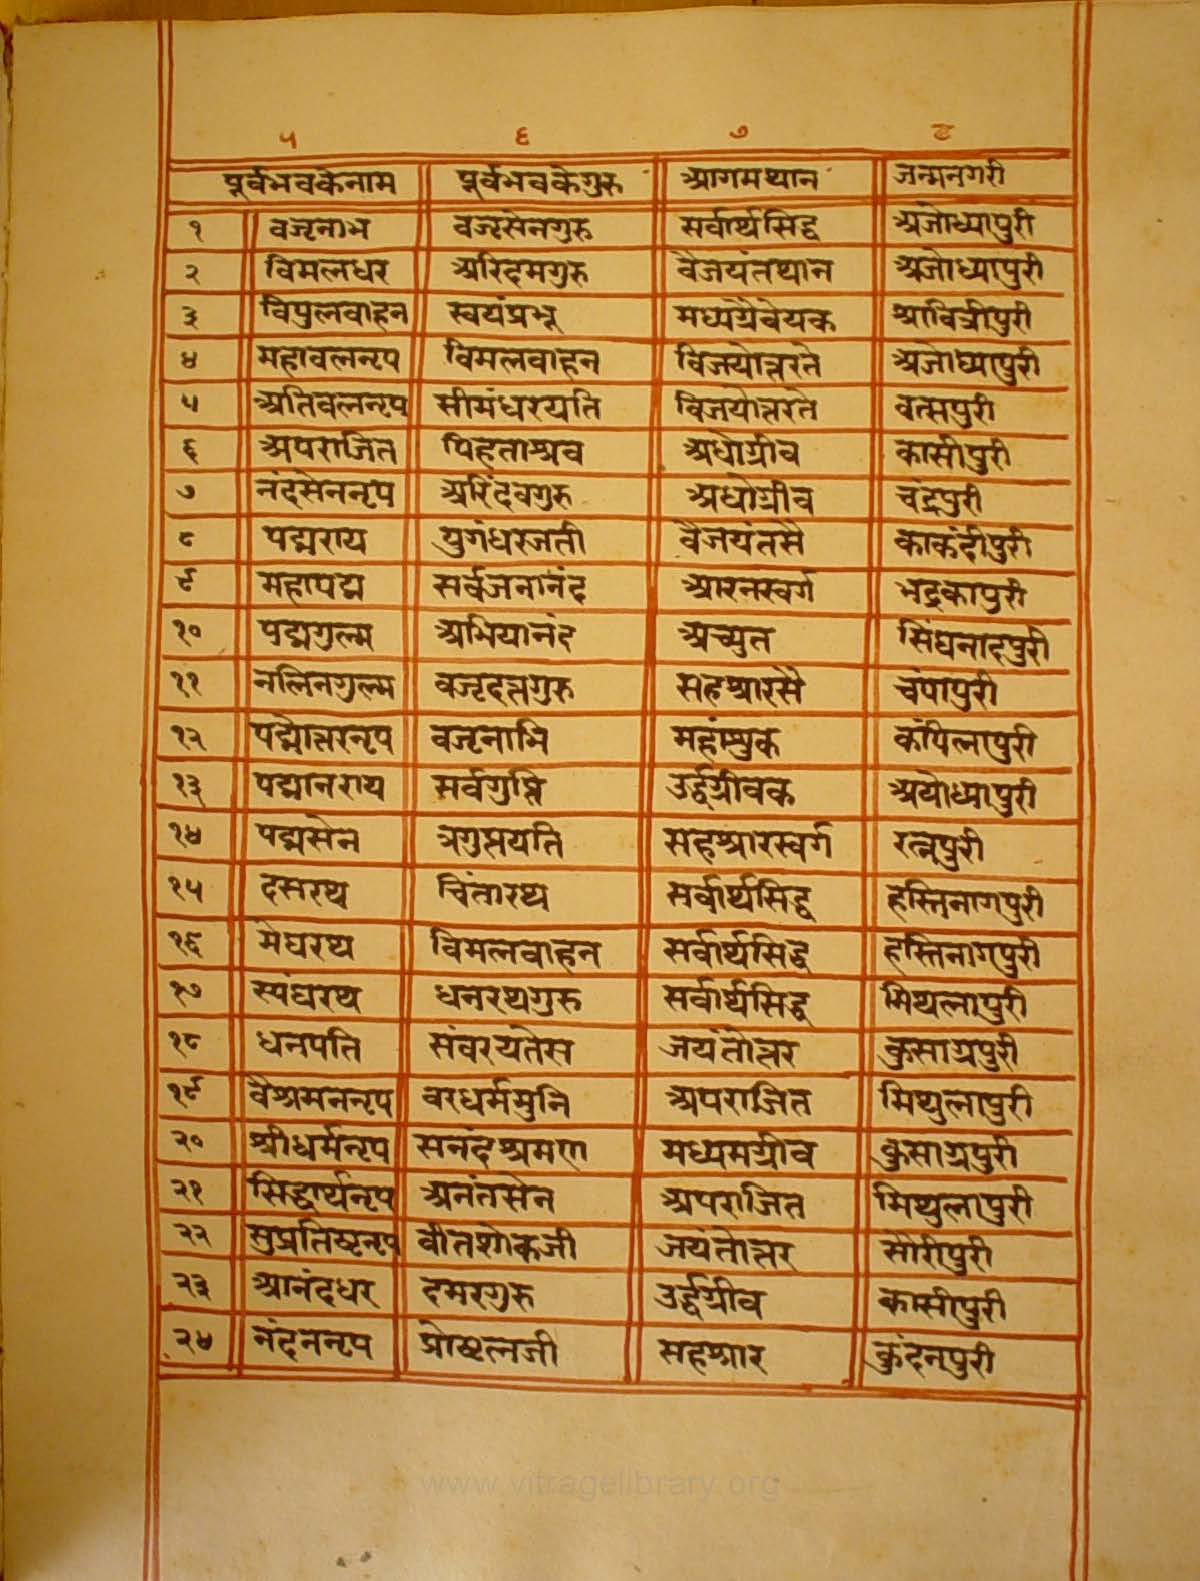 ५ ६ ७ ८
पूर्वभवकेनाम पूर्वभवकेगुरु आगमथान जन्मनगरी
१ वजृनाभ वजृसेनगुरु सर्वार्थसिद्ध अजोध्यापुरी
२ विमलधर अरिदमगुरु वैजयंतथान अजोध्यापुरी
३ विपुलवाहन स्वयंप्रभू मध्यग्रैवेयक श्रावित्रीपुरी
४ महावलनृप विमलवाहन विजयोत्तरते अजोध्यापुरी
५ अतिवलनृप सीमंधरयति विजयोत्तरते वत्सपुरी
६ अपराजित पिहताश्रव अधोग्रीव कासीपुरी
७ नंदसेननृप अरिंदवगुरु अधोग्रीव चंद्रपुरी
८ पद्मराय युगंधरजती वैजयंतसै काकंदीपुरी
९ महापद्म सर्वजनानंद आरनस्वर्ग भद्रकापुरी
१० पद्मगुल्म अभियानंद अच्युत सिंघनादपुरी
११ नलिनगुल्म वजृदत्तगुरु सहश्रारसै चंपापुरी
१२ पद्मोत्तरनृप वजृनाभि महांश्रुक कंपिलापुरी
१३ पद्मानराय सर्वगुप्ति उर्द्धग्रीवक अयोध्यापुरी
१४ पद्मसेन त्रगुप्तयति सहश्रारस्वर्ग रत्नपुरी
१५ दसरथ चिंतारथ सर्वार्थसिद्ध हस्तिनागपुरी
१६ मेघरथ विमलवाहन सर्वार्थसिद्ध हस्तिनागपुरी
१७ स्यंघरथ धनरथगुरु सर्वार्थसिद्ध मिथलापुरी
१८ धनपति संवरयतेस जयंतोत्तर कुसाग्रपुरी
१९ वैश्रमननृप वरधर्ममुनि अपराजित मिथुलापुरी
२० श्रीधर्मनृप सनंदश्रमण मध्यमग्रीव कुसाग्रपुरी
२१ सिद्धार्थनृप अनंतसेन अपराजित मिथुलापुरी
२२ सुप्रतिष्टनृप वीतशोकजी जयंतोत्तर सौरीपुरी
२३ आनंदधर दमरगुरु उर्द्धग्रीव कासीपुरी
२४ नंदननृप प्रोष्टलजी सहश्रार कुंदनपुरी
www.vitragelibrary.org